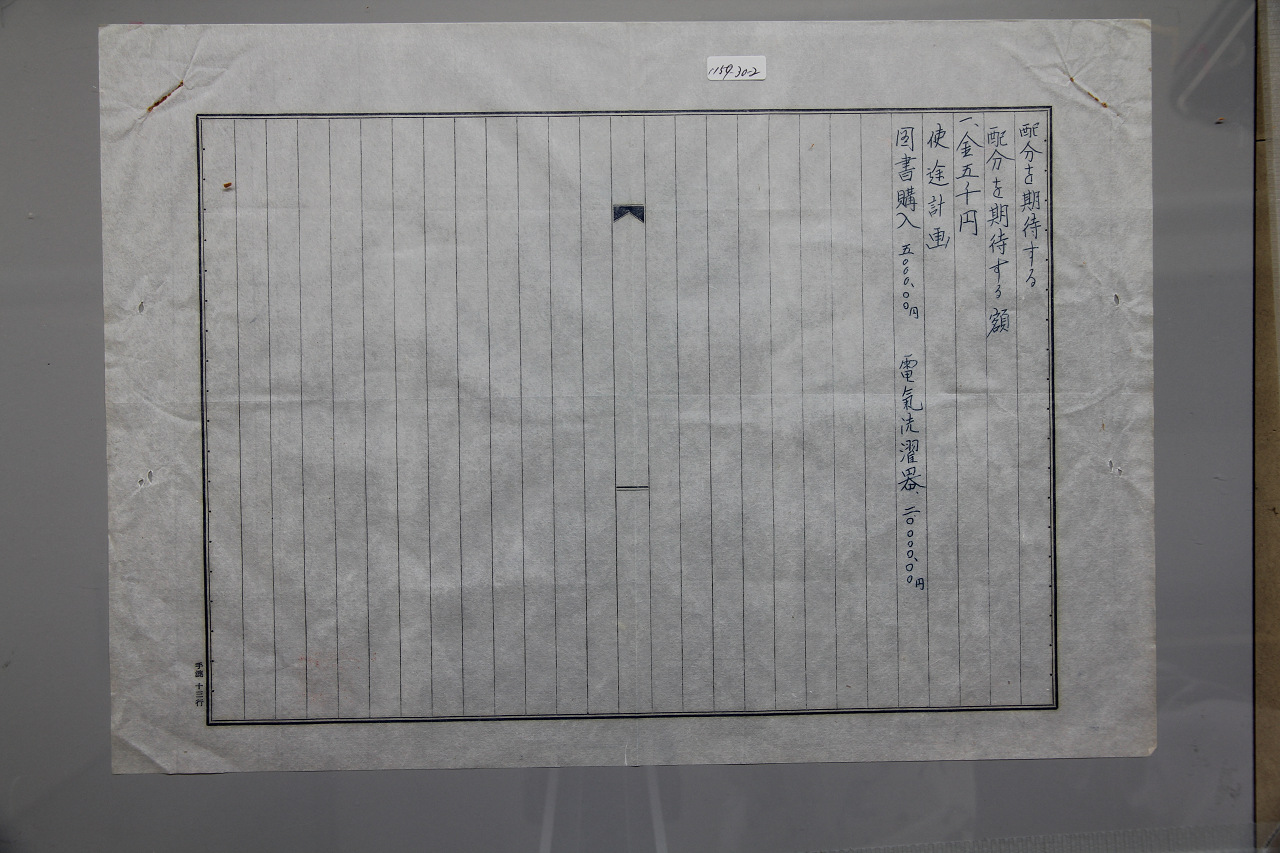 配分を期待する
配分を期待する額
一、金五千円
使途計画
図書購入 五〇〇〇、〇〇円 電氣洗濯器、二〇〇〇〇、〇〇円
手漉 十三行
1159-30-2